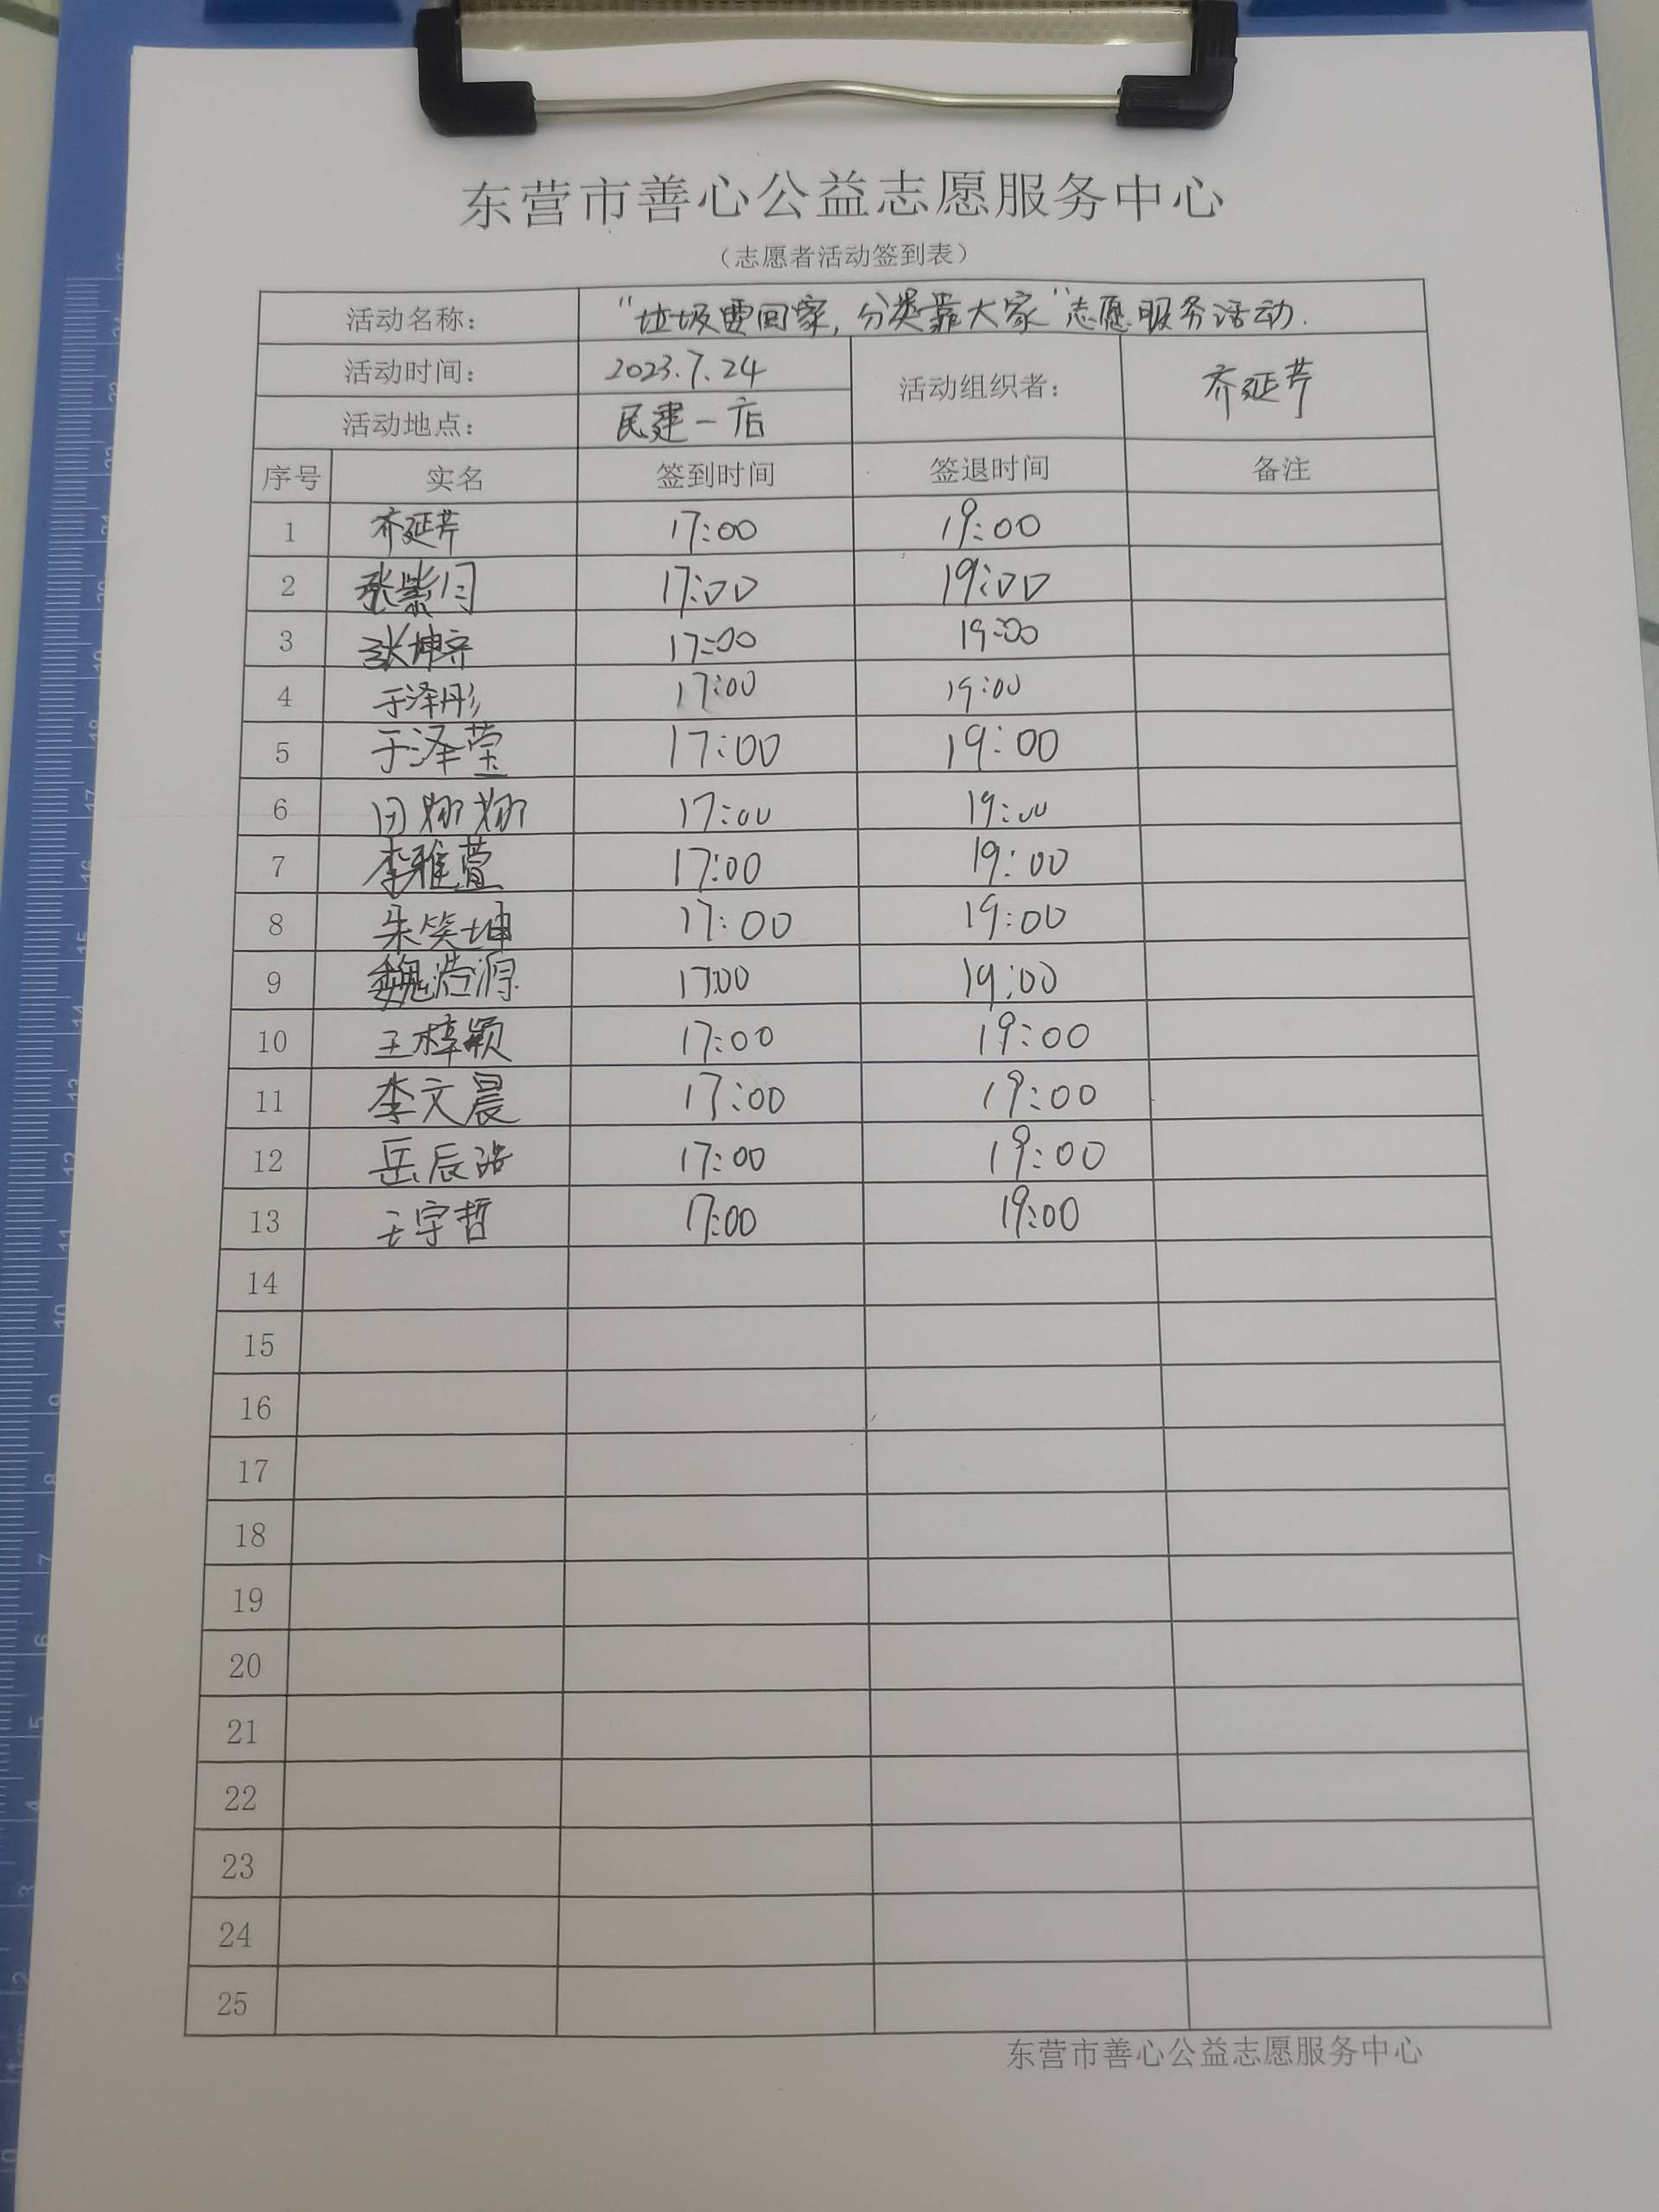 东营市善心公益志愿服务中心
（志愿者活动签到表）
活动名称： “垃圾要回家，分类靠大家”志愿服务活动.
活动时间： 2023.7.24 活动组织者： 齐延芹
活动地点： 民建一店
序号 实名 签到时间 签退时间 备注
1 齐延芹 17:00 19:00
2 张紫月 17:00 19:00
3 张坤齐 17:00 19:00
4 于泽彤 17:00 19:00
5 于泽莹 17:00 19:00
6 田娜娜 17:00 19:00
7 李雅萱 17:00 19:00
8 朱笑坤 17:00 19:00
9 魏浩源 17:00 19:00
10 王梓颖 17:00 19:00
11 李文晨 17:00 19:00
12 岳辰 17:00 19:00
13 王宇哲 17:00 19:00
14
15
16
17
18
19
20
21
22
23
24
25
东营市善心公益志愿服务中心